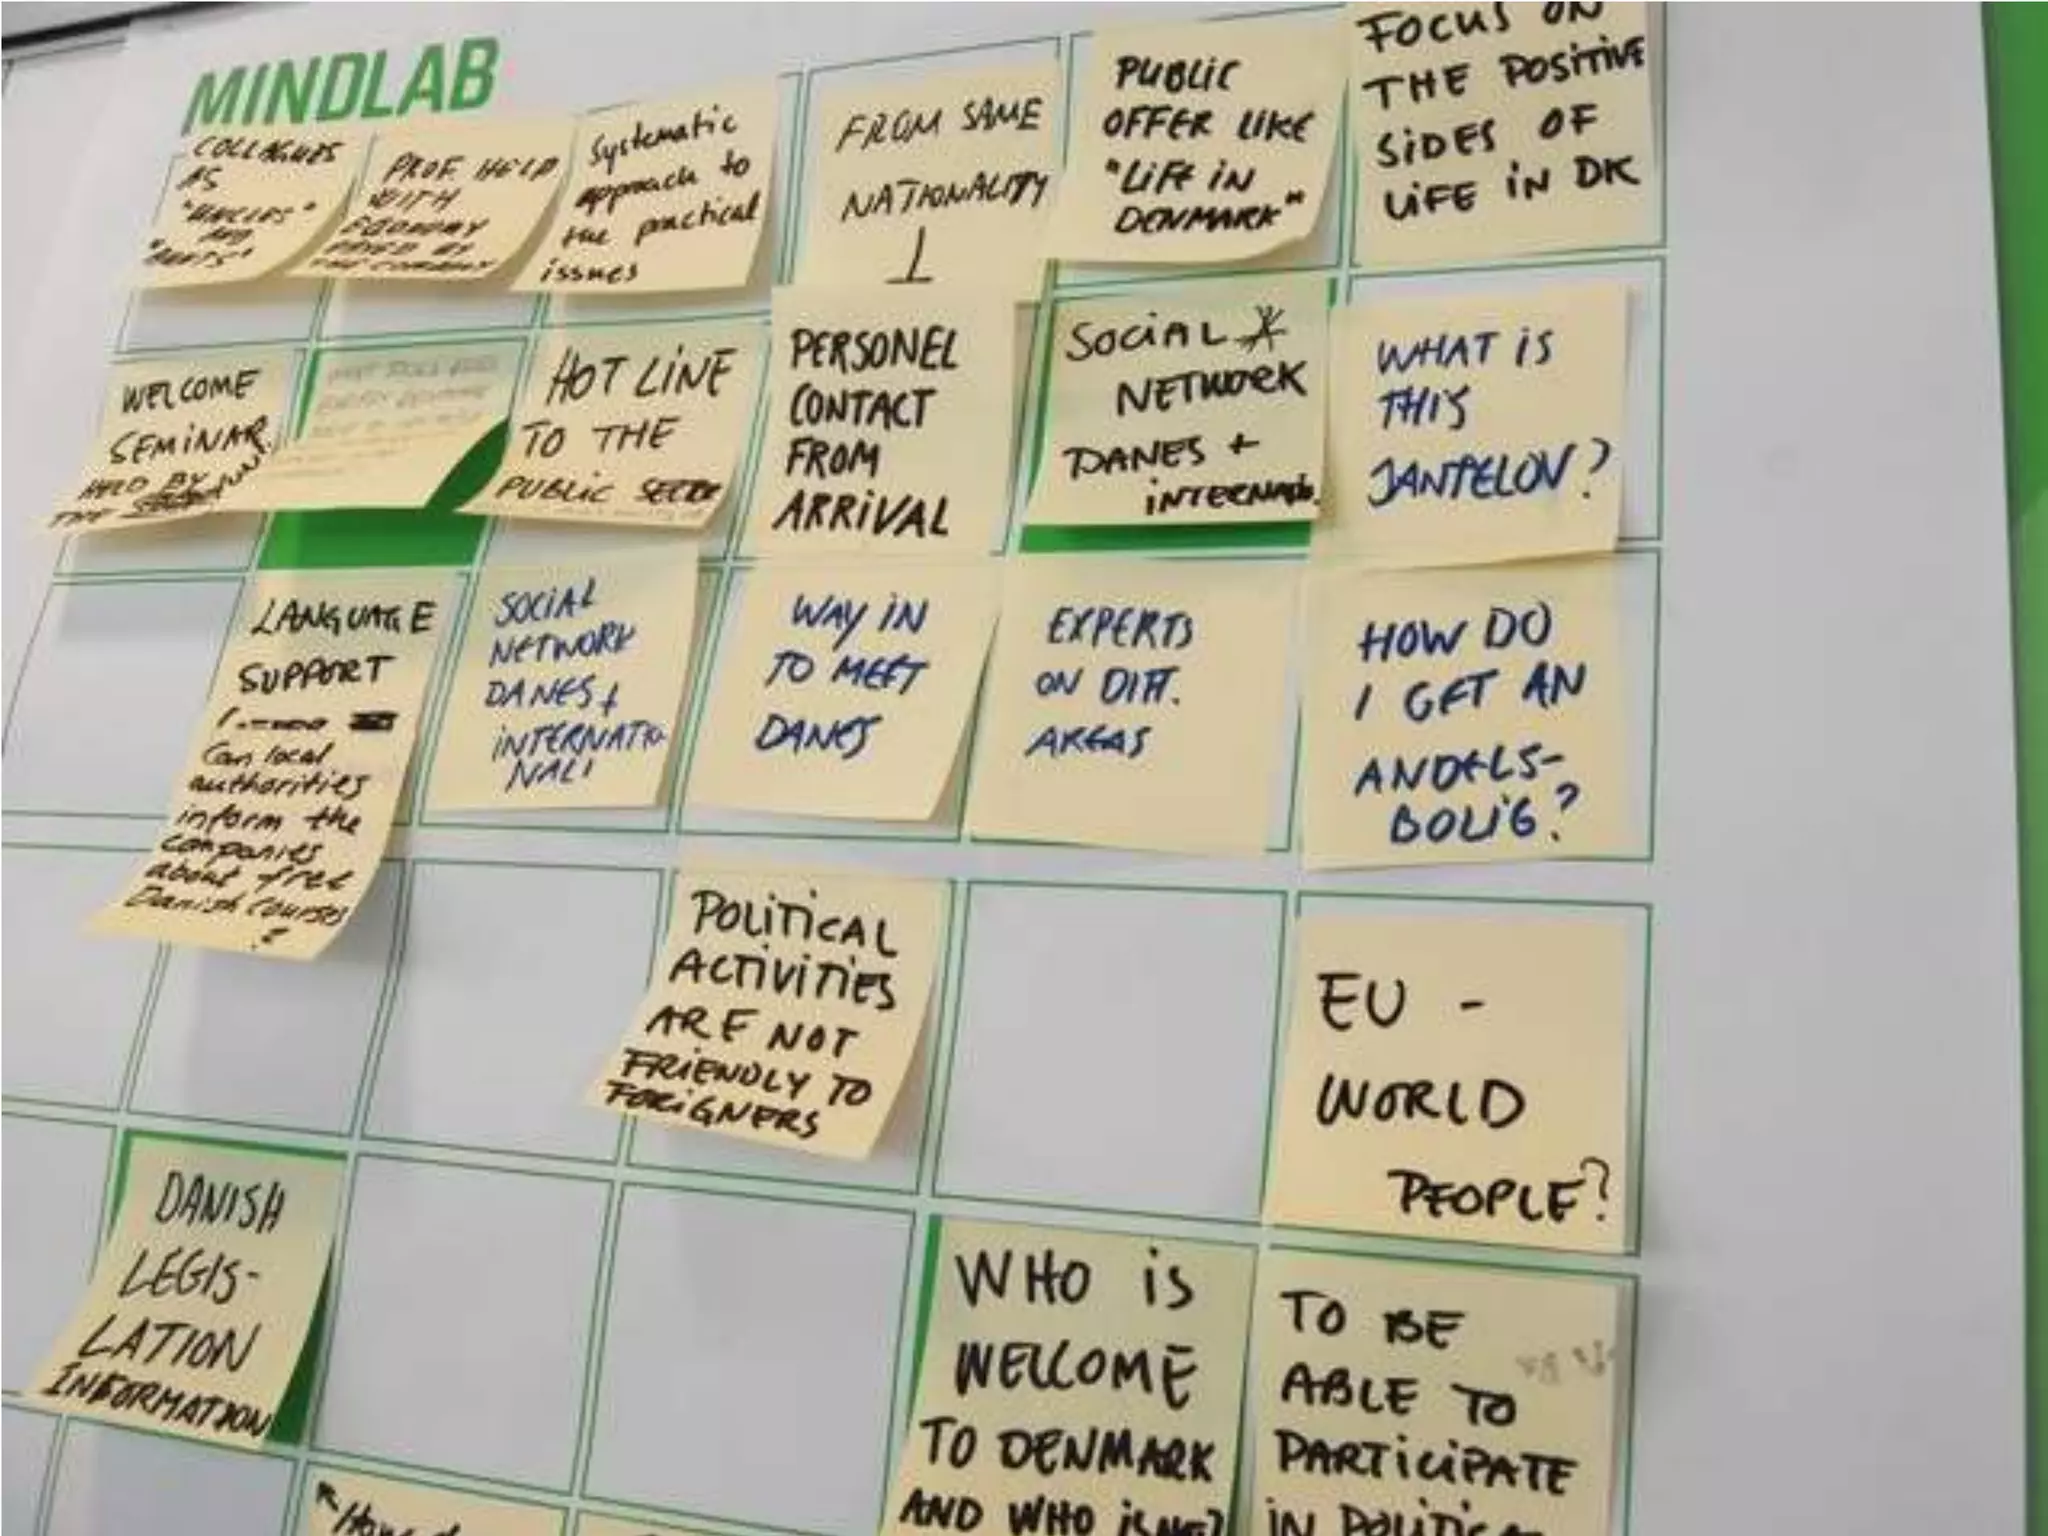 MINDLAB
COLLEGUES
AS
"UNCLES"
AND
"AUNTS"
PROF. HELP
WITH
ECONOMY
PAYED BY
THE COMPANY
Systematic
approach to
the practical
issues
FROM SAME
NATIONALITY
PUBLIC
OFFER LIKE
"LIFE IN
DENMARK"
FOCUS ON
THE POSITIVE
SIDES OF
LIFE IN DK
WELCOME
SEMINAR
HELD BY
THE
HOT LINE
TO THE
PUBLIC
PERSONEL
CONTACT
FROM
ARRIVAL
SOCIAL
NETWORK
DANES +
WHAT IS
THIS
JANTELOV?
LANGUAGE
SUPPORT
Can local
authorities
inform the
companies
about free
Danish courses
?
SOCIAL
NETWORK
DANES +
INTERNATIO
NALI
WAY IN
TO MEET
DANES
EXPERTS
ON DIFF.
AREAS
HOW DO
I GET AN
ANDELS-
BOLIG?
POLITICAL
ACTIVITIES
ARE NOT
FRIENDLY TO
FORIGNERS
EU -
WORLD
PEOPLE?
DANISH
LEGIS-
LATION
INFORMATION
WHO IS
WELCOME
TO DENMARK
AND WHO IS
TO BE
ABLE TO
PARTICIPATE
IN